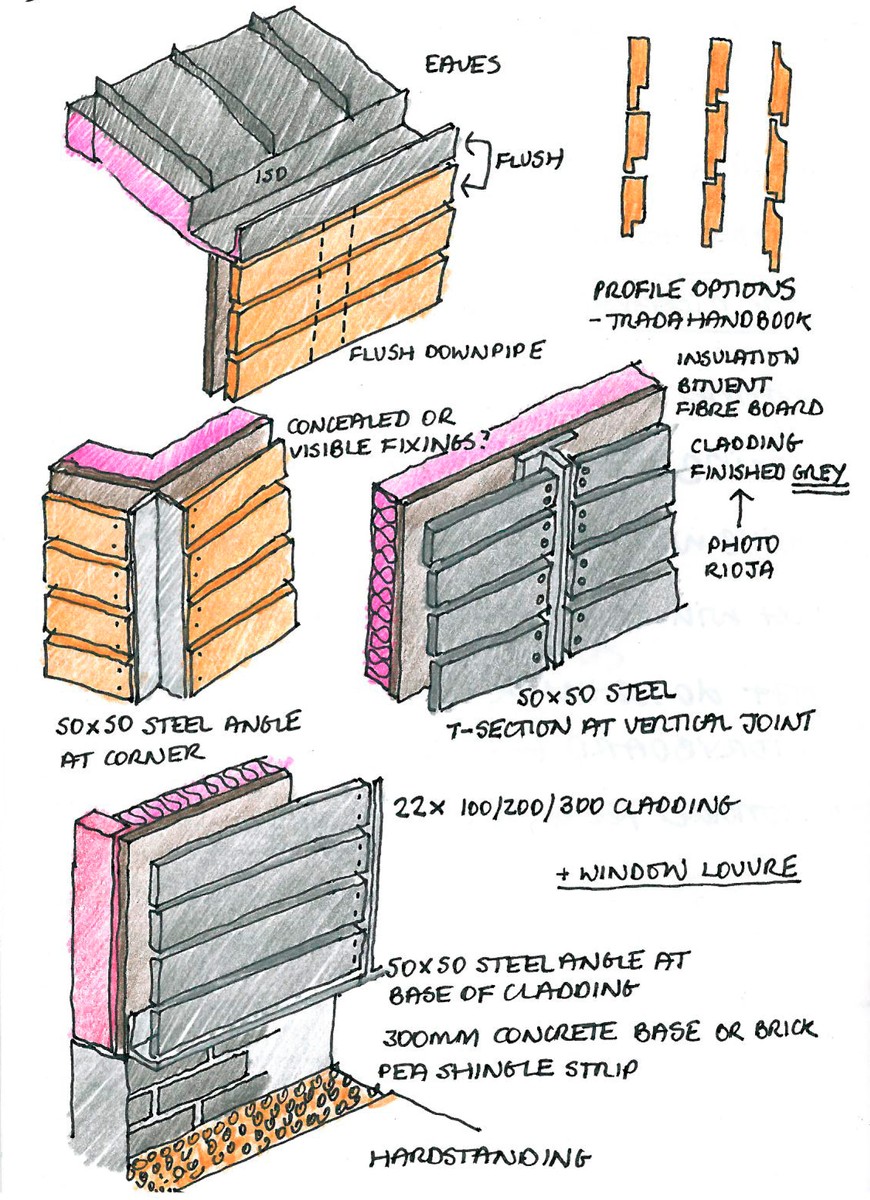 EAVES
150
FLUSH
PROFILE OPTIONS
- TRADA HANDBOOK
FLUSH DOWNPIPE
INSULATION
BITUENT
FIBRE BOARD
CONCEALED OR
VISIBLE FIXINGS?
CLADDING
FINISHED GREY
PHOTO
RIOJA
50x50 STEEL ANGLE
AT CORNER
50x50 STEEL
T-SECTION AT VERTICAL JOINT
22x 100/200/300 CLADDING
+ WINDOW LOUVRE
50x50 STEEL ANGLE AT
BASE OF CLADDING
300MM CONCRETE BASE OR BRICK
PEA SHINGLE STRIP
HARDSTANDING